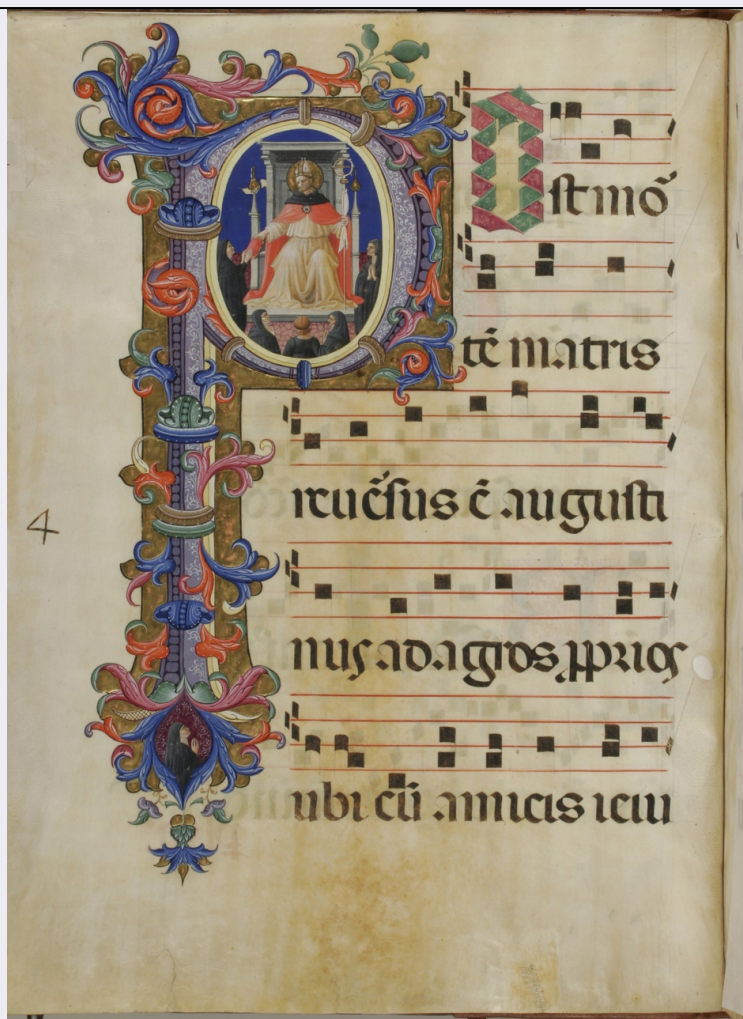 POst mo᷃
te᷃ matris
reue᷃sus e᷃ augusti
nus ad agros ꝓprios
ubi cu᷃ amicis ieiu
4